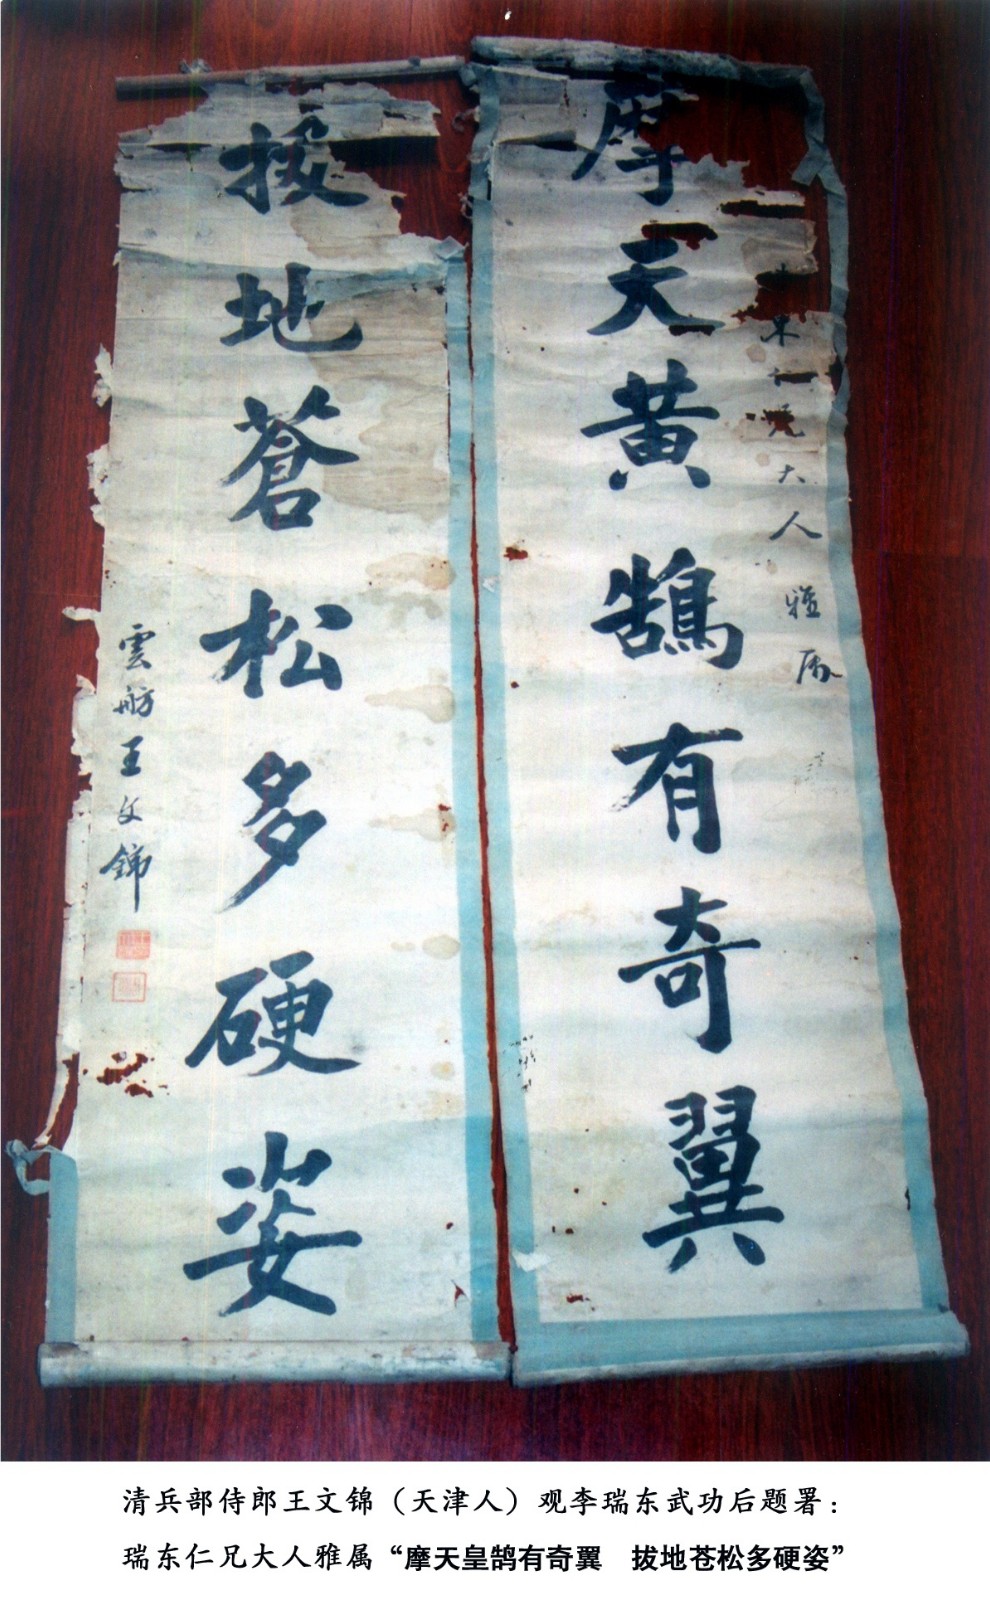 摩天黃鵠有奇翼
東仁兄大人雅屬
拔地蒼松多硬姿
雲舫王文錦
清兵部侍郎王文锦（天津人）观李瑞东武功后题署：
瑞东仁兄大人雅属“摩天皇鹄有奇翼　拔地苍松多硬姿”